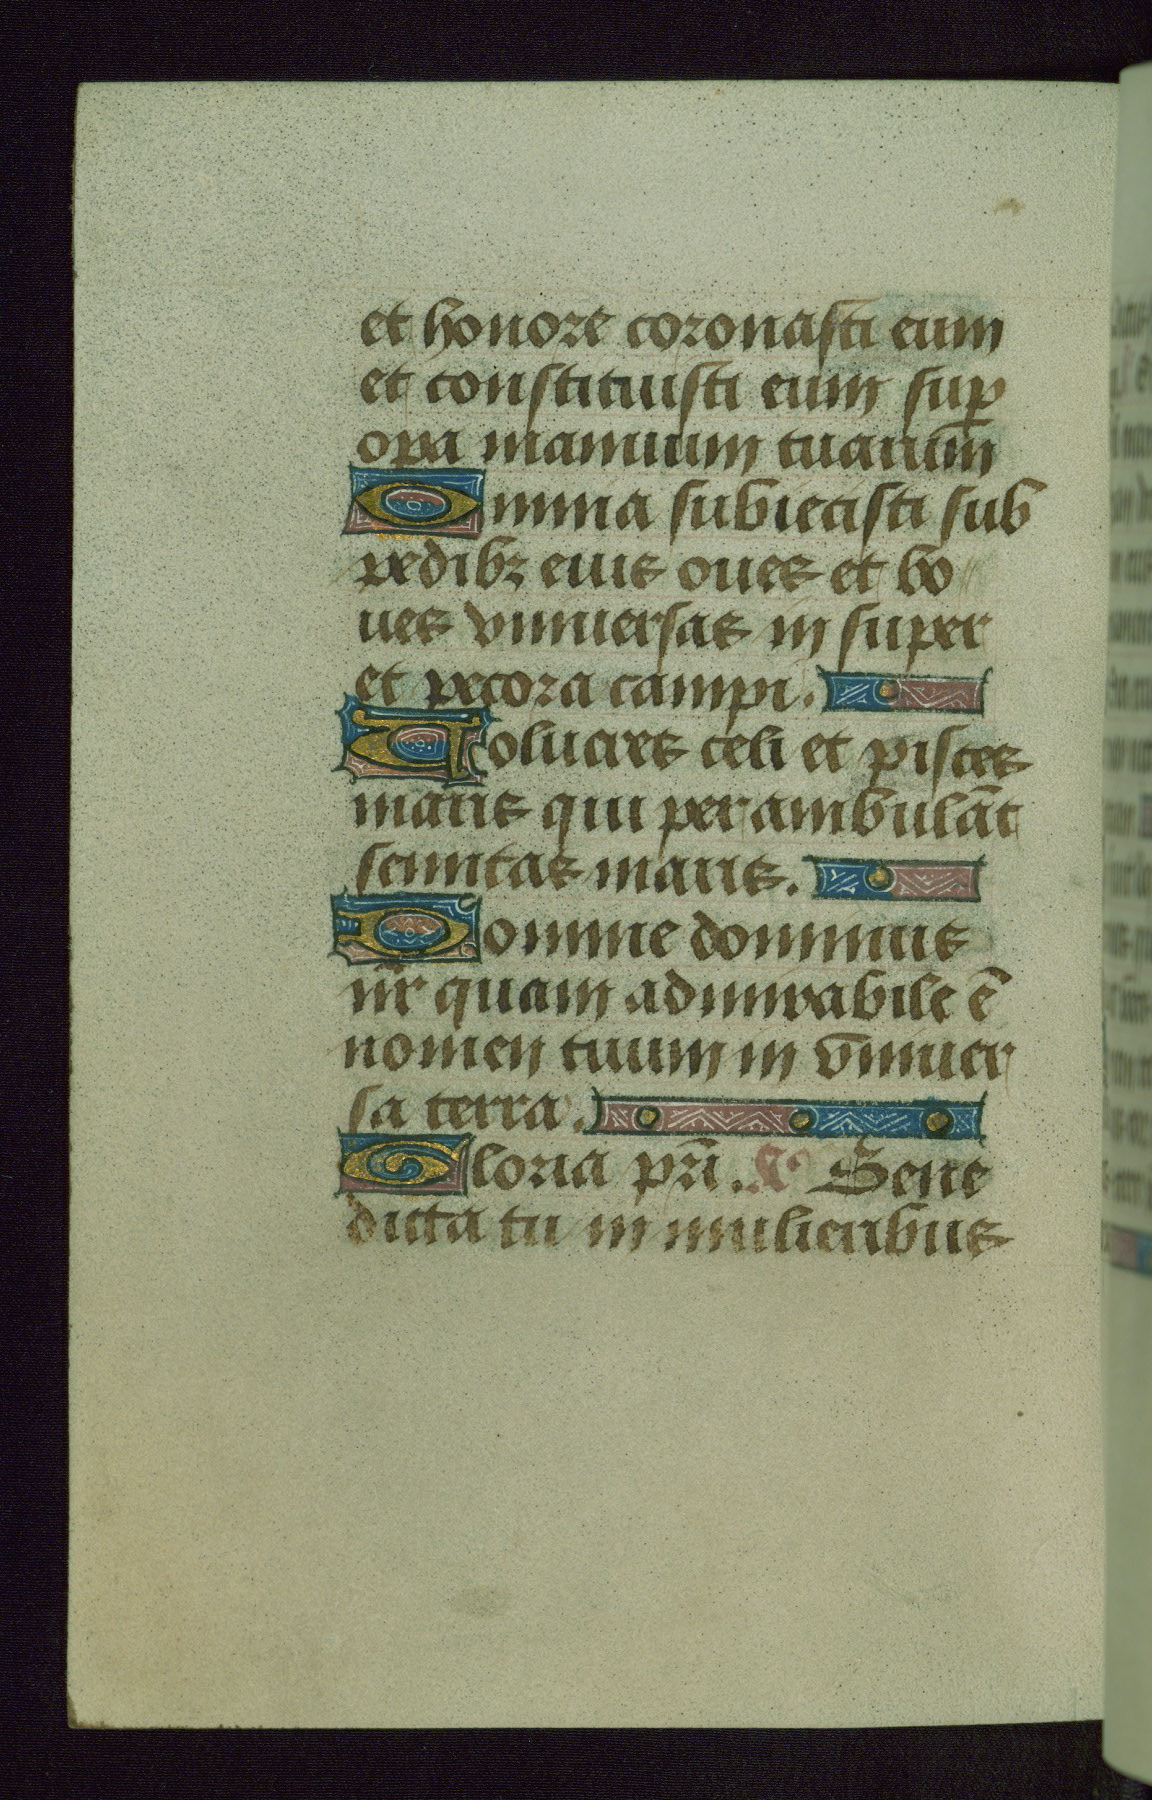 et honore coronasti eum
et constituisti eum sup̱
op̱a manuum tuarum
Omnia subiecisti sub
pedibꝫ eius oues et bo
ues vniuersas in super
et pecora campi.
Uolucres celi et pisces
maris qui perambulāt
semitas maris.
Domine dominus
nr̄ quam admirabile ē
nomen tuum in vniuer
sa terra.
Gloria pr̄i. Bene
dicta tu in mulieribus